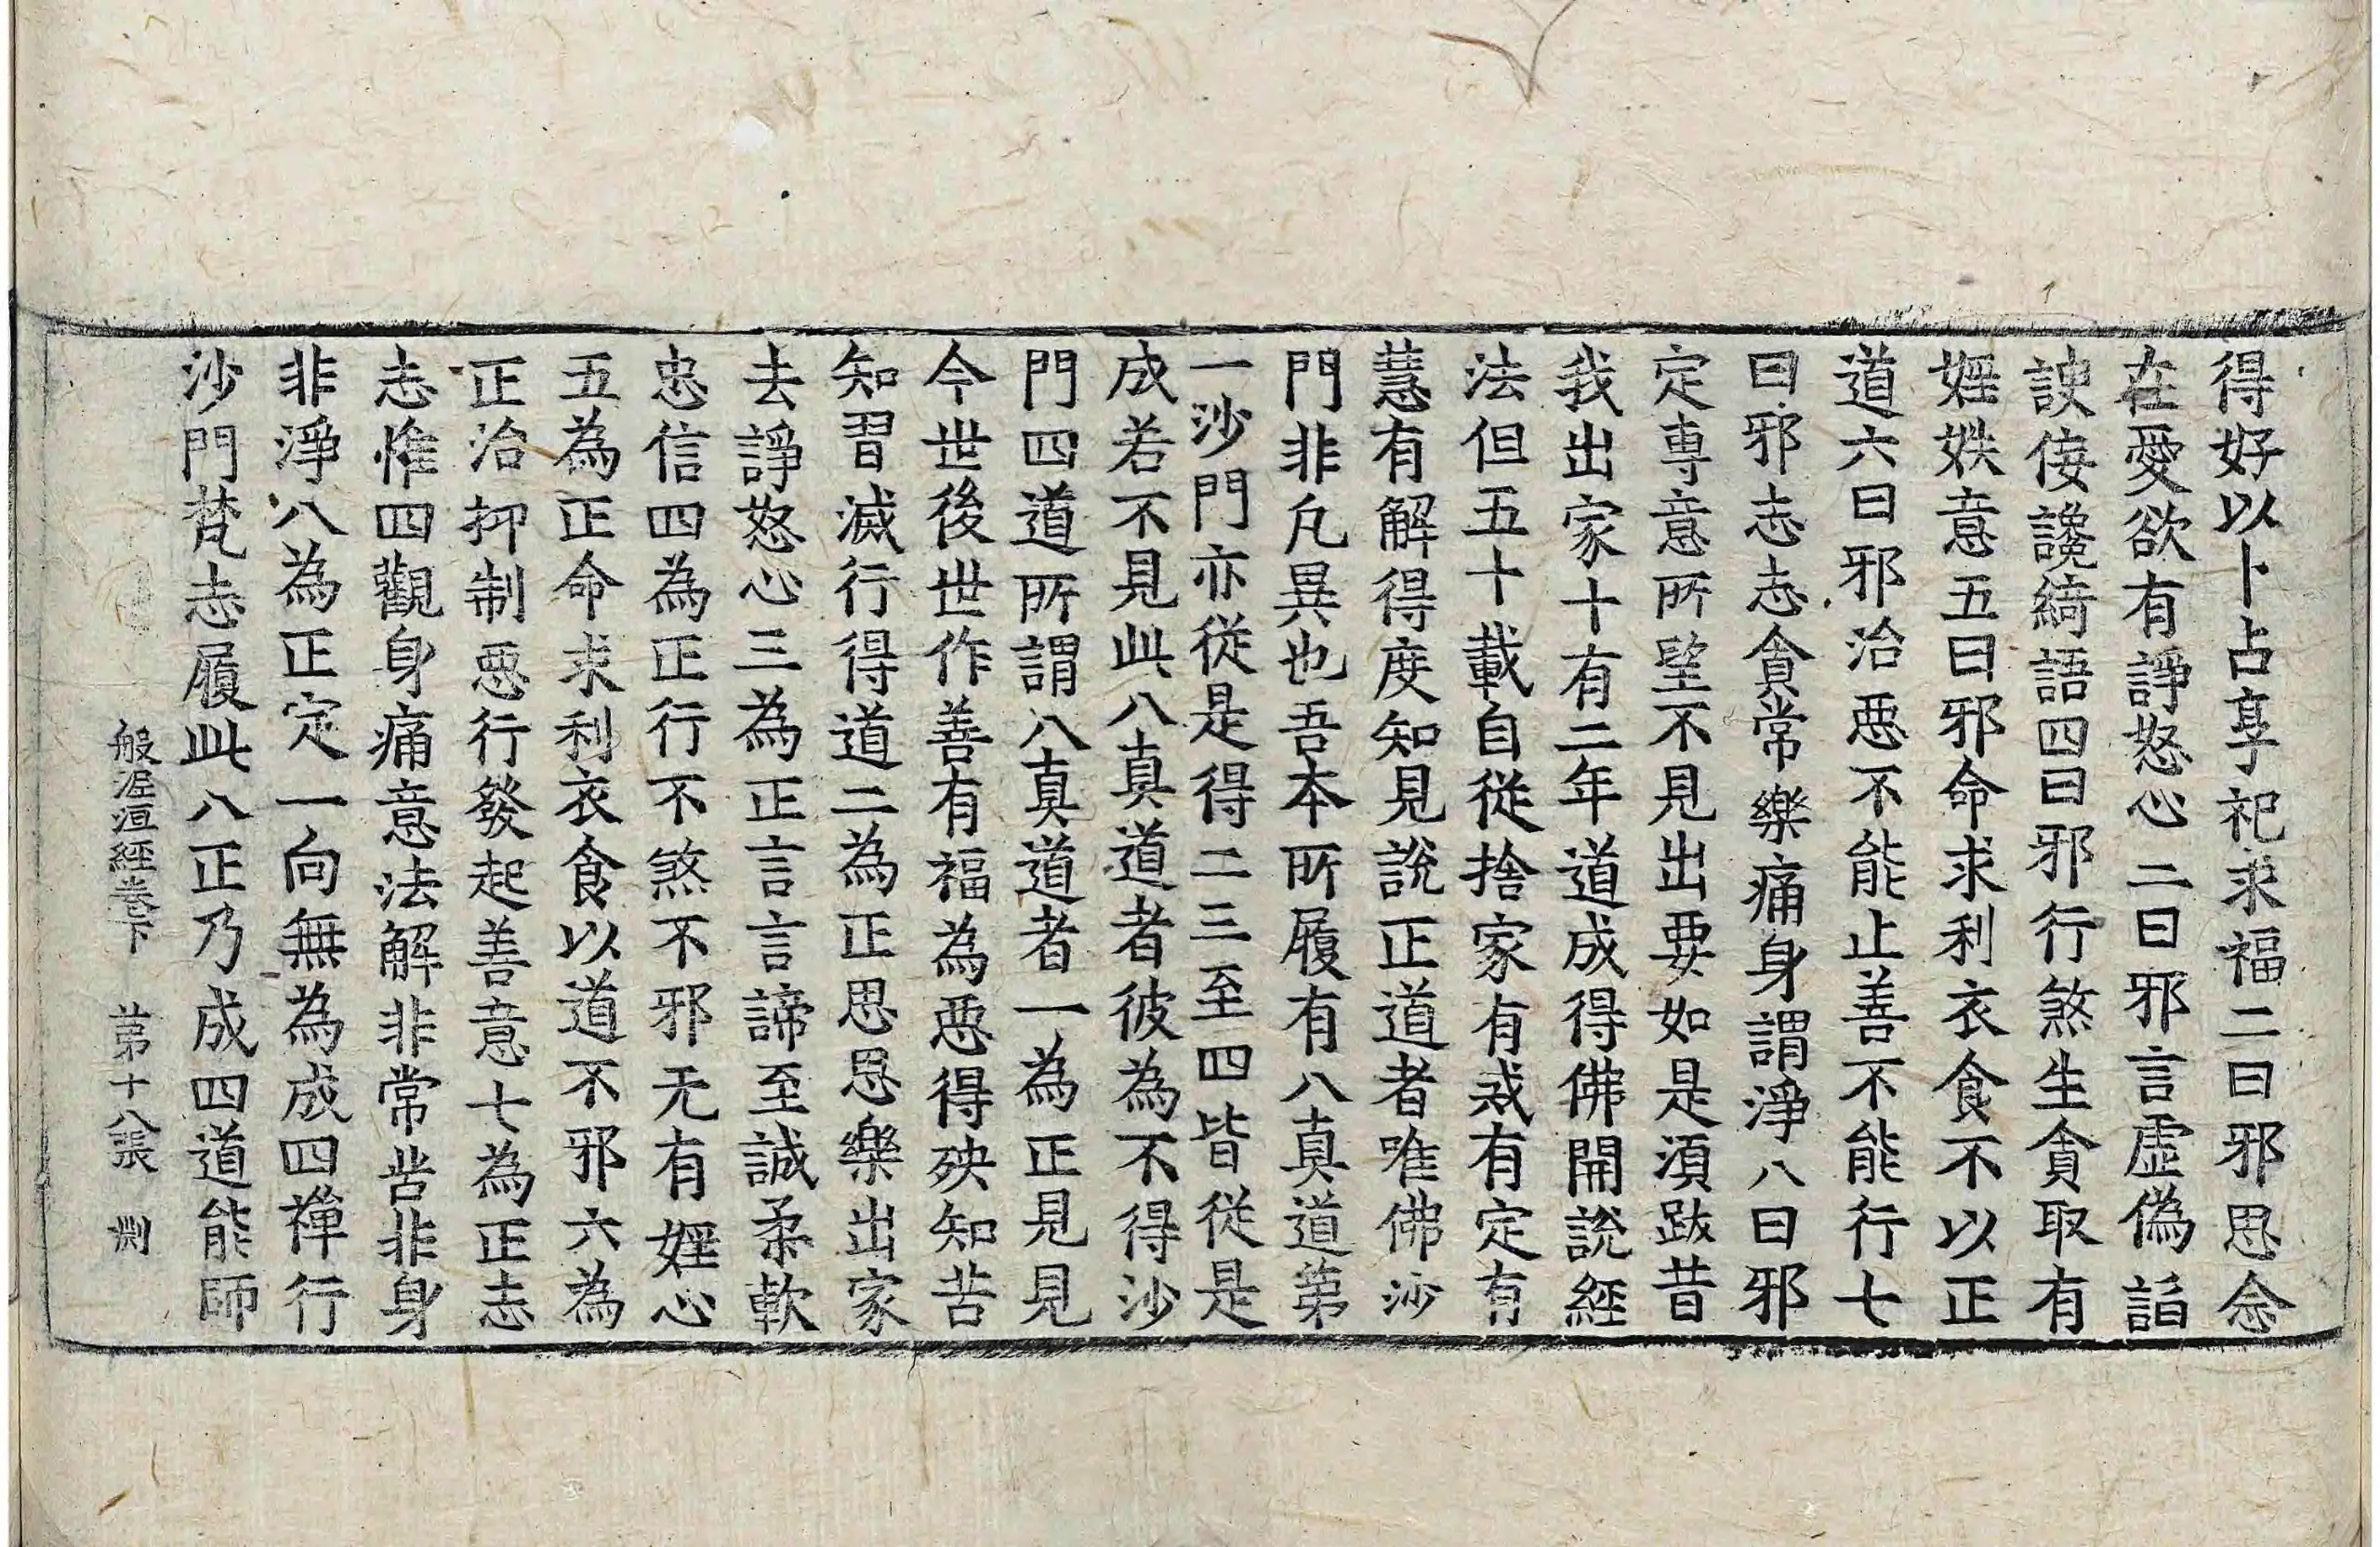 得好以卜占享祀求福二曰邪思念
在愛欲有諍怒心二曰邪言虛偽諂
諛佞讒綺語四曰邪行煞生貪取有
婬妷意五曰邪命求利衣食不以正
道六曰邪治惡不能止善不能行七
曰邪志志貪常樂痛身謂淨八曰邪
定專意所望不見出要如是須跋昔
我出家十有二年道成得佛開說經
法但五十載自從捨家有戒有定有
慧有解得度知見說正道者唯佛沙
門非凡異也吾本所履有八真道第
一沙門亦從是得二三至四皆從是
成若不見此八真道者彼為不得沙
門四道所謂八真道者一為正見見
今世後世作善有福為惡得殃知苦
知習滅行得道二為正思思樂出家
去諍怒心三為正言言諦至誠柔軟
忠信四為正行不煞不邪无有婬心
五為正命求利衣食以道不邪六為
正治抑制惡行發起善意七為正志
志惟四觀身痛意法解非常苦非身
非淨八為正定一向無為成四禪行
沙門梵志履此八正乃成四道能師
般泥洹經卷下 第十八張